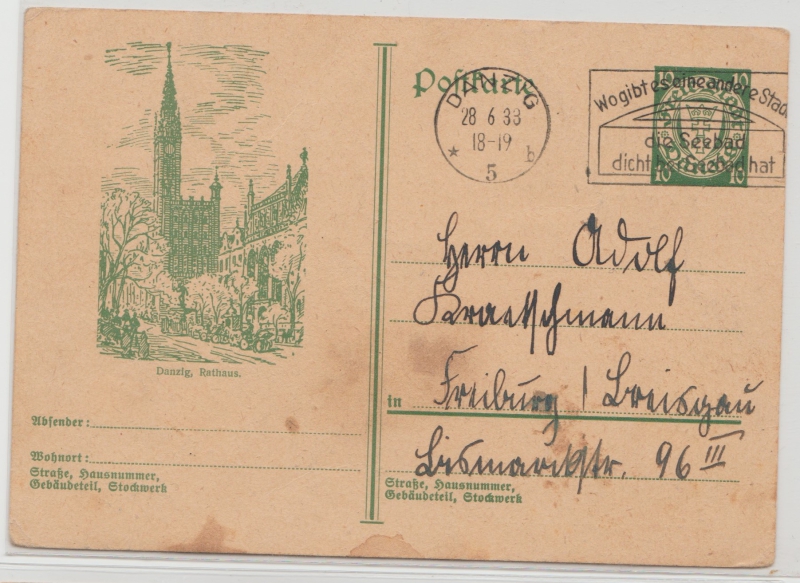 Postkarte
DANZIG
28 6 33
18-19
* 5 b
Wo gibt es eine andere Stadt
die Seebad
dicht bei hat
10 10
10 10
Danzig, Rathaus.
Herrn Adolf
Kraetschmann
in Freiburg / Breisgau
Bismarckstr. 96 III
Straße, Hausnummer,
Gebäudeteil, Stockwerk
Absender:
Wohnort:
Straße, Hausnummer,
Gebäudeteil, Stockwerk